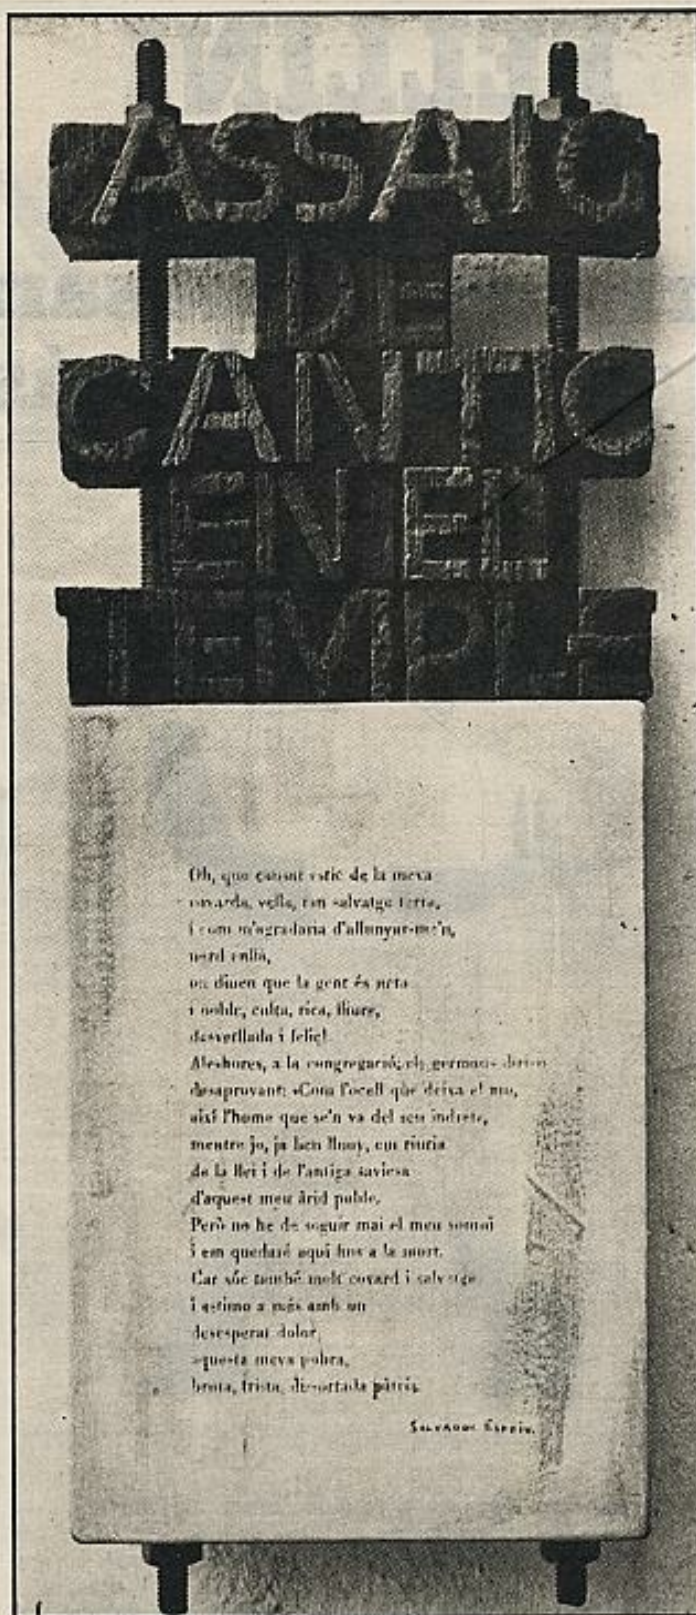 ASSAIG
DE
CANTIC
EN EL
TEMPLE
Oh, que cansat estic de la meva
covarda, vella, tan salvatge terra,
i com m'agradaria d'allunyar-me'n,
nord enllà,
on diuen que la gent és neta
i noble, culta, rica, lliure,
desvetllada i feliç!
Aleshores, a la congregació, els germans dirien
desaprovant: «Com l'ocell que deixa el niu,
així l'home que se'n va del seu indret»,
mentre jo, ja ben lluny, em riuria
de la llei i de l'antiga saviesa
d'aquest meu àrid poble.
Però no he de seguir mai el meu somni
i em quedaré aquí fins a la mort.
Car sóc també molt covard i salvatge
i estimo a més amb un
desesperat dolor
aquesta meva pobra,
bruta, trista, dissortada pàtria.
SALVADOR ESPRIU.